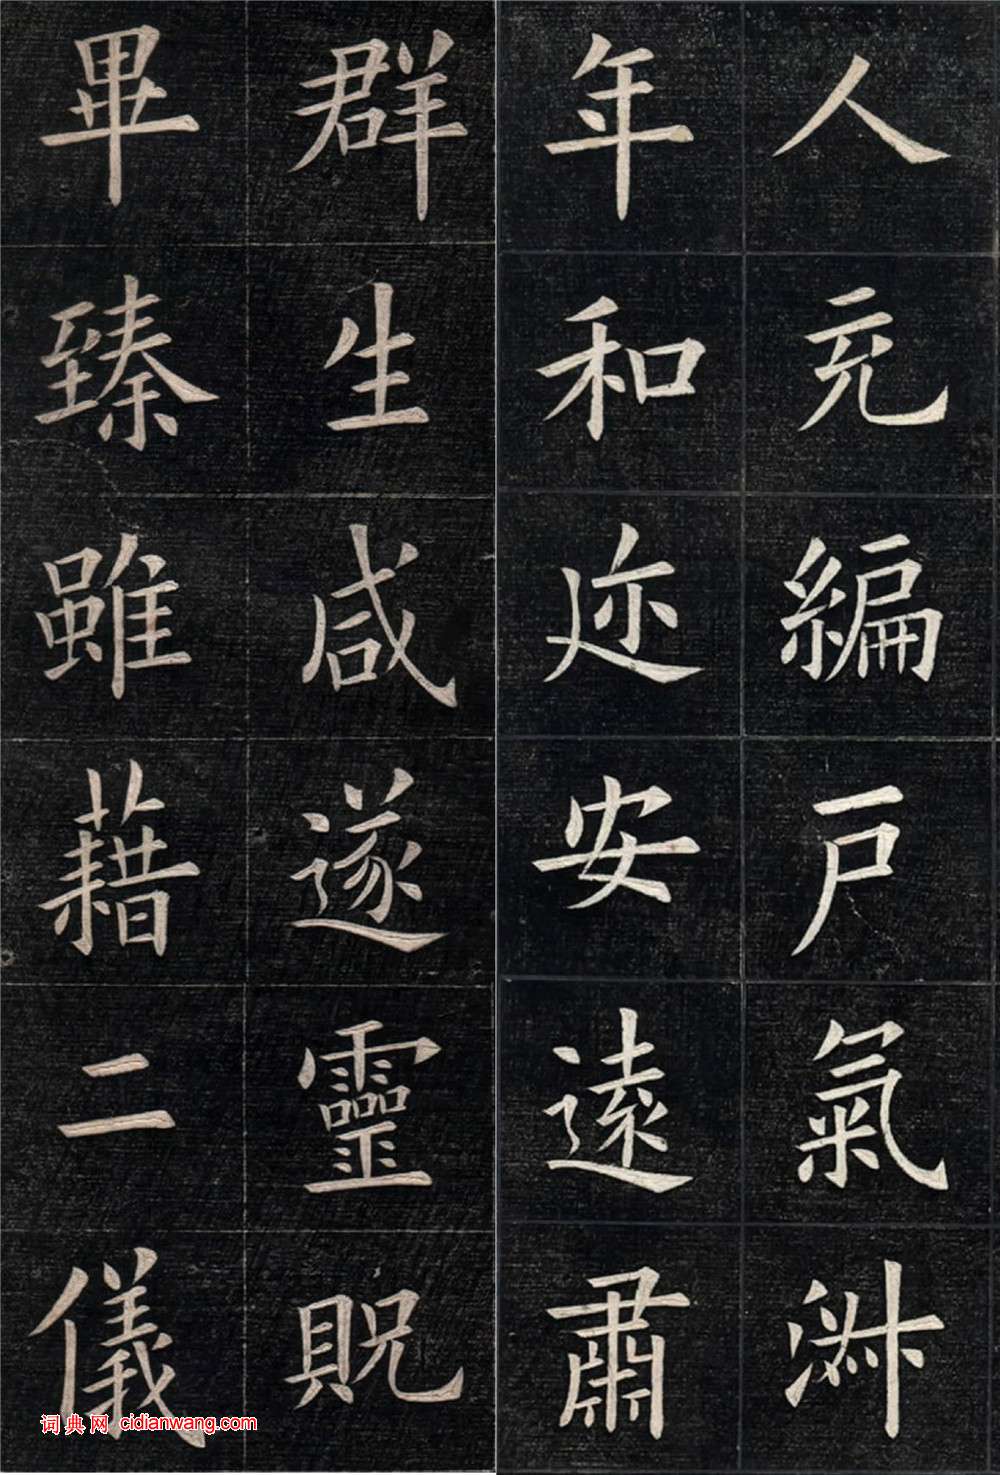 人充編戶氣淑
年和迩安遠肅
群生咸遂靈貺
畢臻雖藉二儀
词典网 cidianwang.com